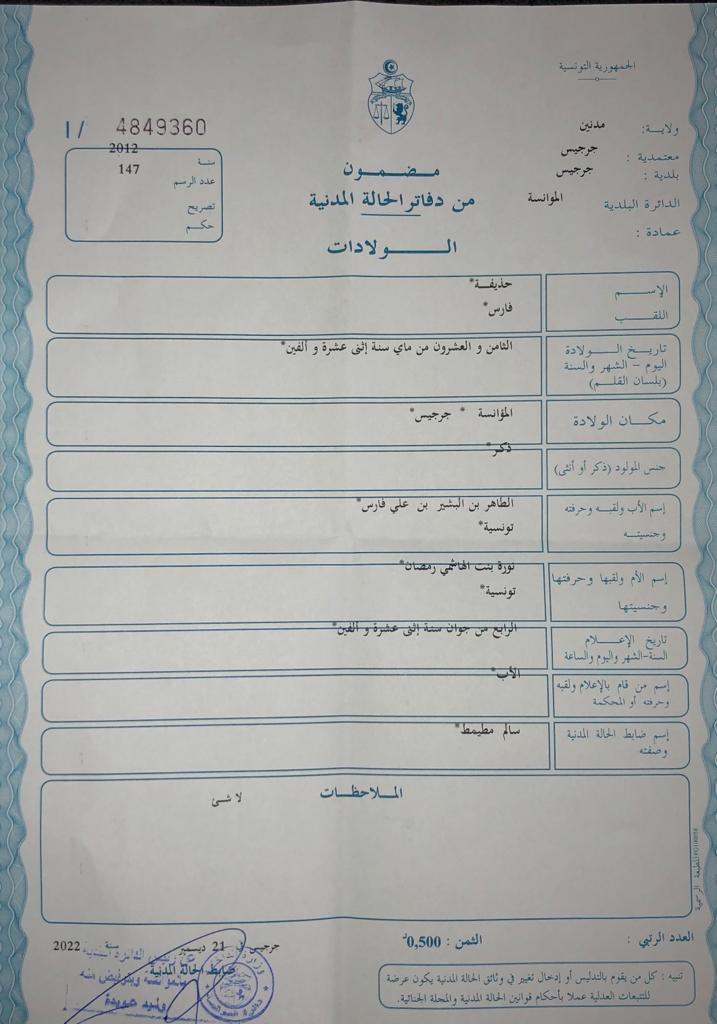 الجمهورية التونسية
ولاية: مدنين
معتمدية : جرجيس
بلدية : جرجيس
الدائرة البلدية الموانسة
عمادة :
I / 4849360
سنة 2012
عدد الرسم 147
تصريح
حكم
مضمون
من دفاتر الحالة المدنية
الولادات
الإسم حذيفة*
اللقب فارس*
تاريخ الولادة الثامن و العشرون من ماي سنة إثنى عشرة و ألفين*
اليوم – الشهر والسنة
(بلسان القلم)
مكان الولادة المؤانسة * جرجيس*
جنس المولود (ذكر أو أنثى) ذكر*
إسم الأب ولقبه وحرفته الطاهر بن البشير بن علي فارس*
وجنسيته تونسية*
إسم الأم ولقبها وحرفتها نورة بنت الهاشمي رمضان*
وجنسيتها تونسية*
تاريخ الإعلام الرابع من جوان سنة إثنى عشرة و ألفين*
السنة-الشهر واليوم والساعة
إسم من قام بالإعلام ولقبه الأب*
وحرفته أو المحكمة
إسم ضابط الحالة المدنية سالم مطيمط*
وصفته
الملاحظات
لا شئ
المطبعة الرسمية
العدد الرتبي :
الثمن : 0,500د
جرجيس في 21 ديسمبر سنة 2022
ضابط الحالة المدنية
وليد عويدة
تنبيه : كل من يقوم بالتدليس أو إدخال تغيير في وثائق الحالة المدنية يكون عرضة
للتتبعات العدلية عملا بأحكام قوانين الحالة المدنية والمجلة الجنائية.